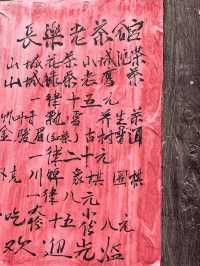 長樂老茶館
山城花茶 山城沱茶
山城綠茶 老鷹茶
一律十五元
竹叶青 飘雪 养生茶
金骏眉(红茶) 古树普洱
一律二十元
川牌 象棋 围棋
一律八元
吃 大 十五 小 八元
欢迎光临